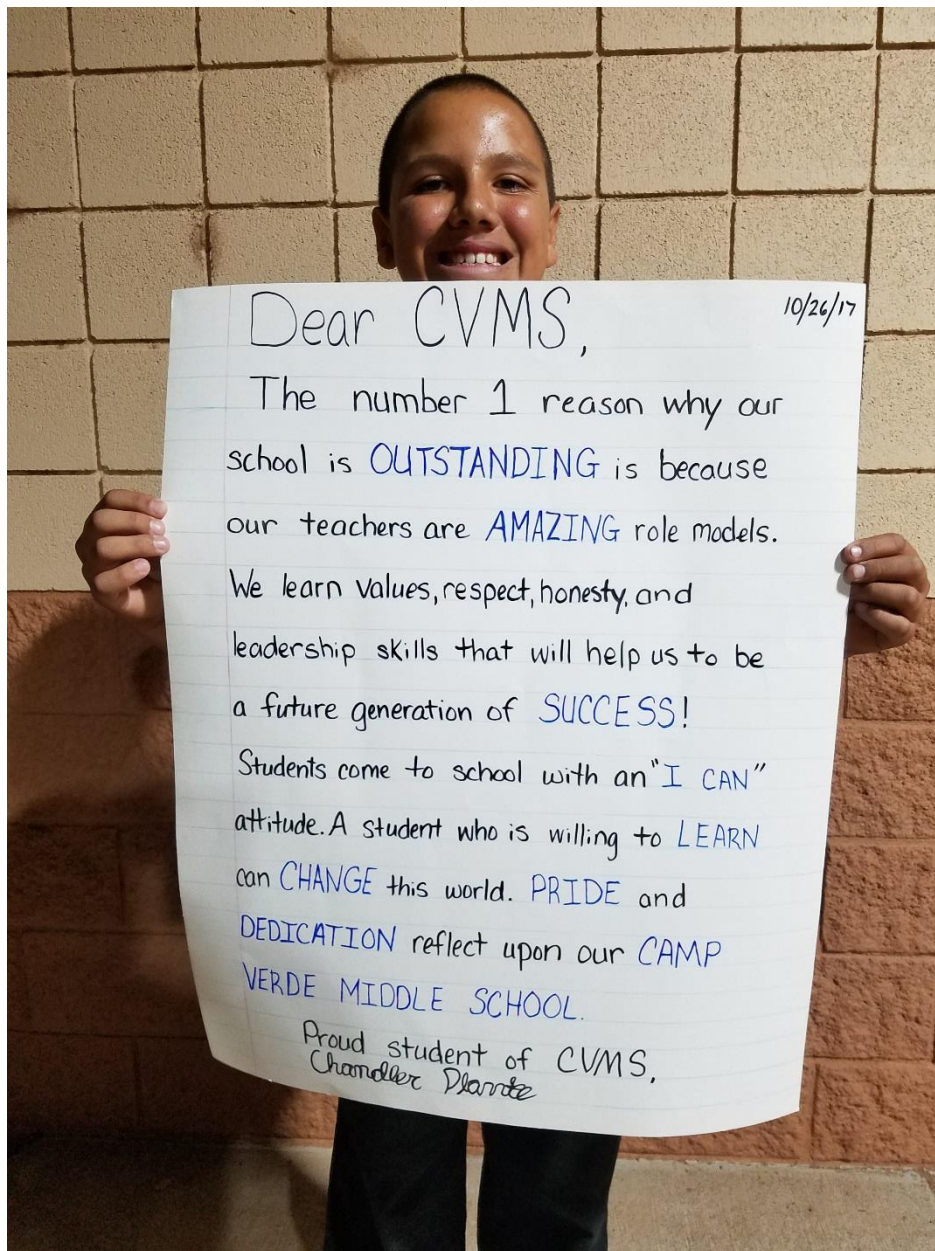 10/26/17
Dear CVMS,
The number 1 reason why our
school is OUTSTANDING is because
our teachers are AMAZING role models.
We learn values, respect, honesty, and
leadership skills that will help us to be
a future generation of SUCCESS!
Students come to school with an "I CAN"
attitude. A student who is willing to LEARN
can CHANGE this world. PRIDE and
DEDICATION reflect upon our CAMP
VERDE MIDDLE SCHOOL.
Proud student of CVMS,
Chandler